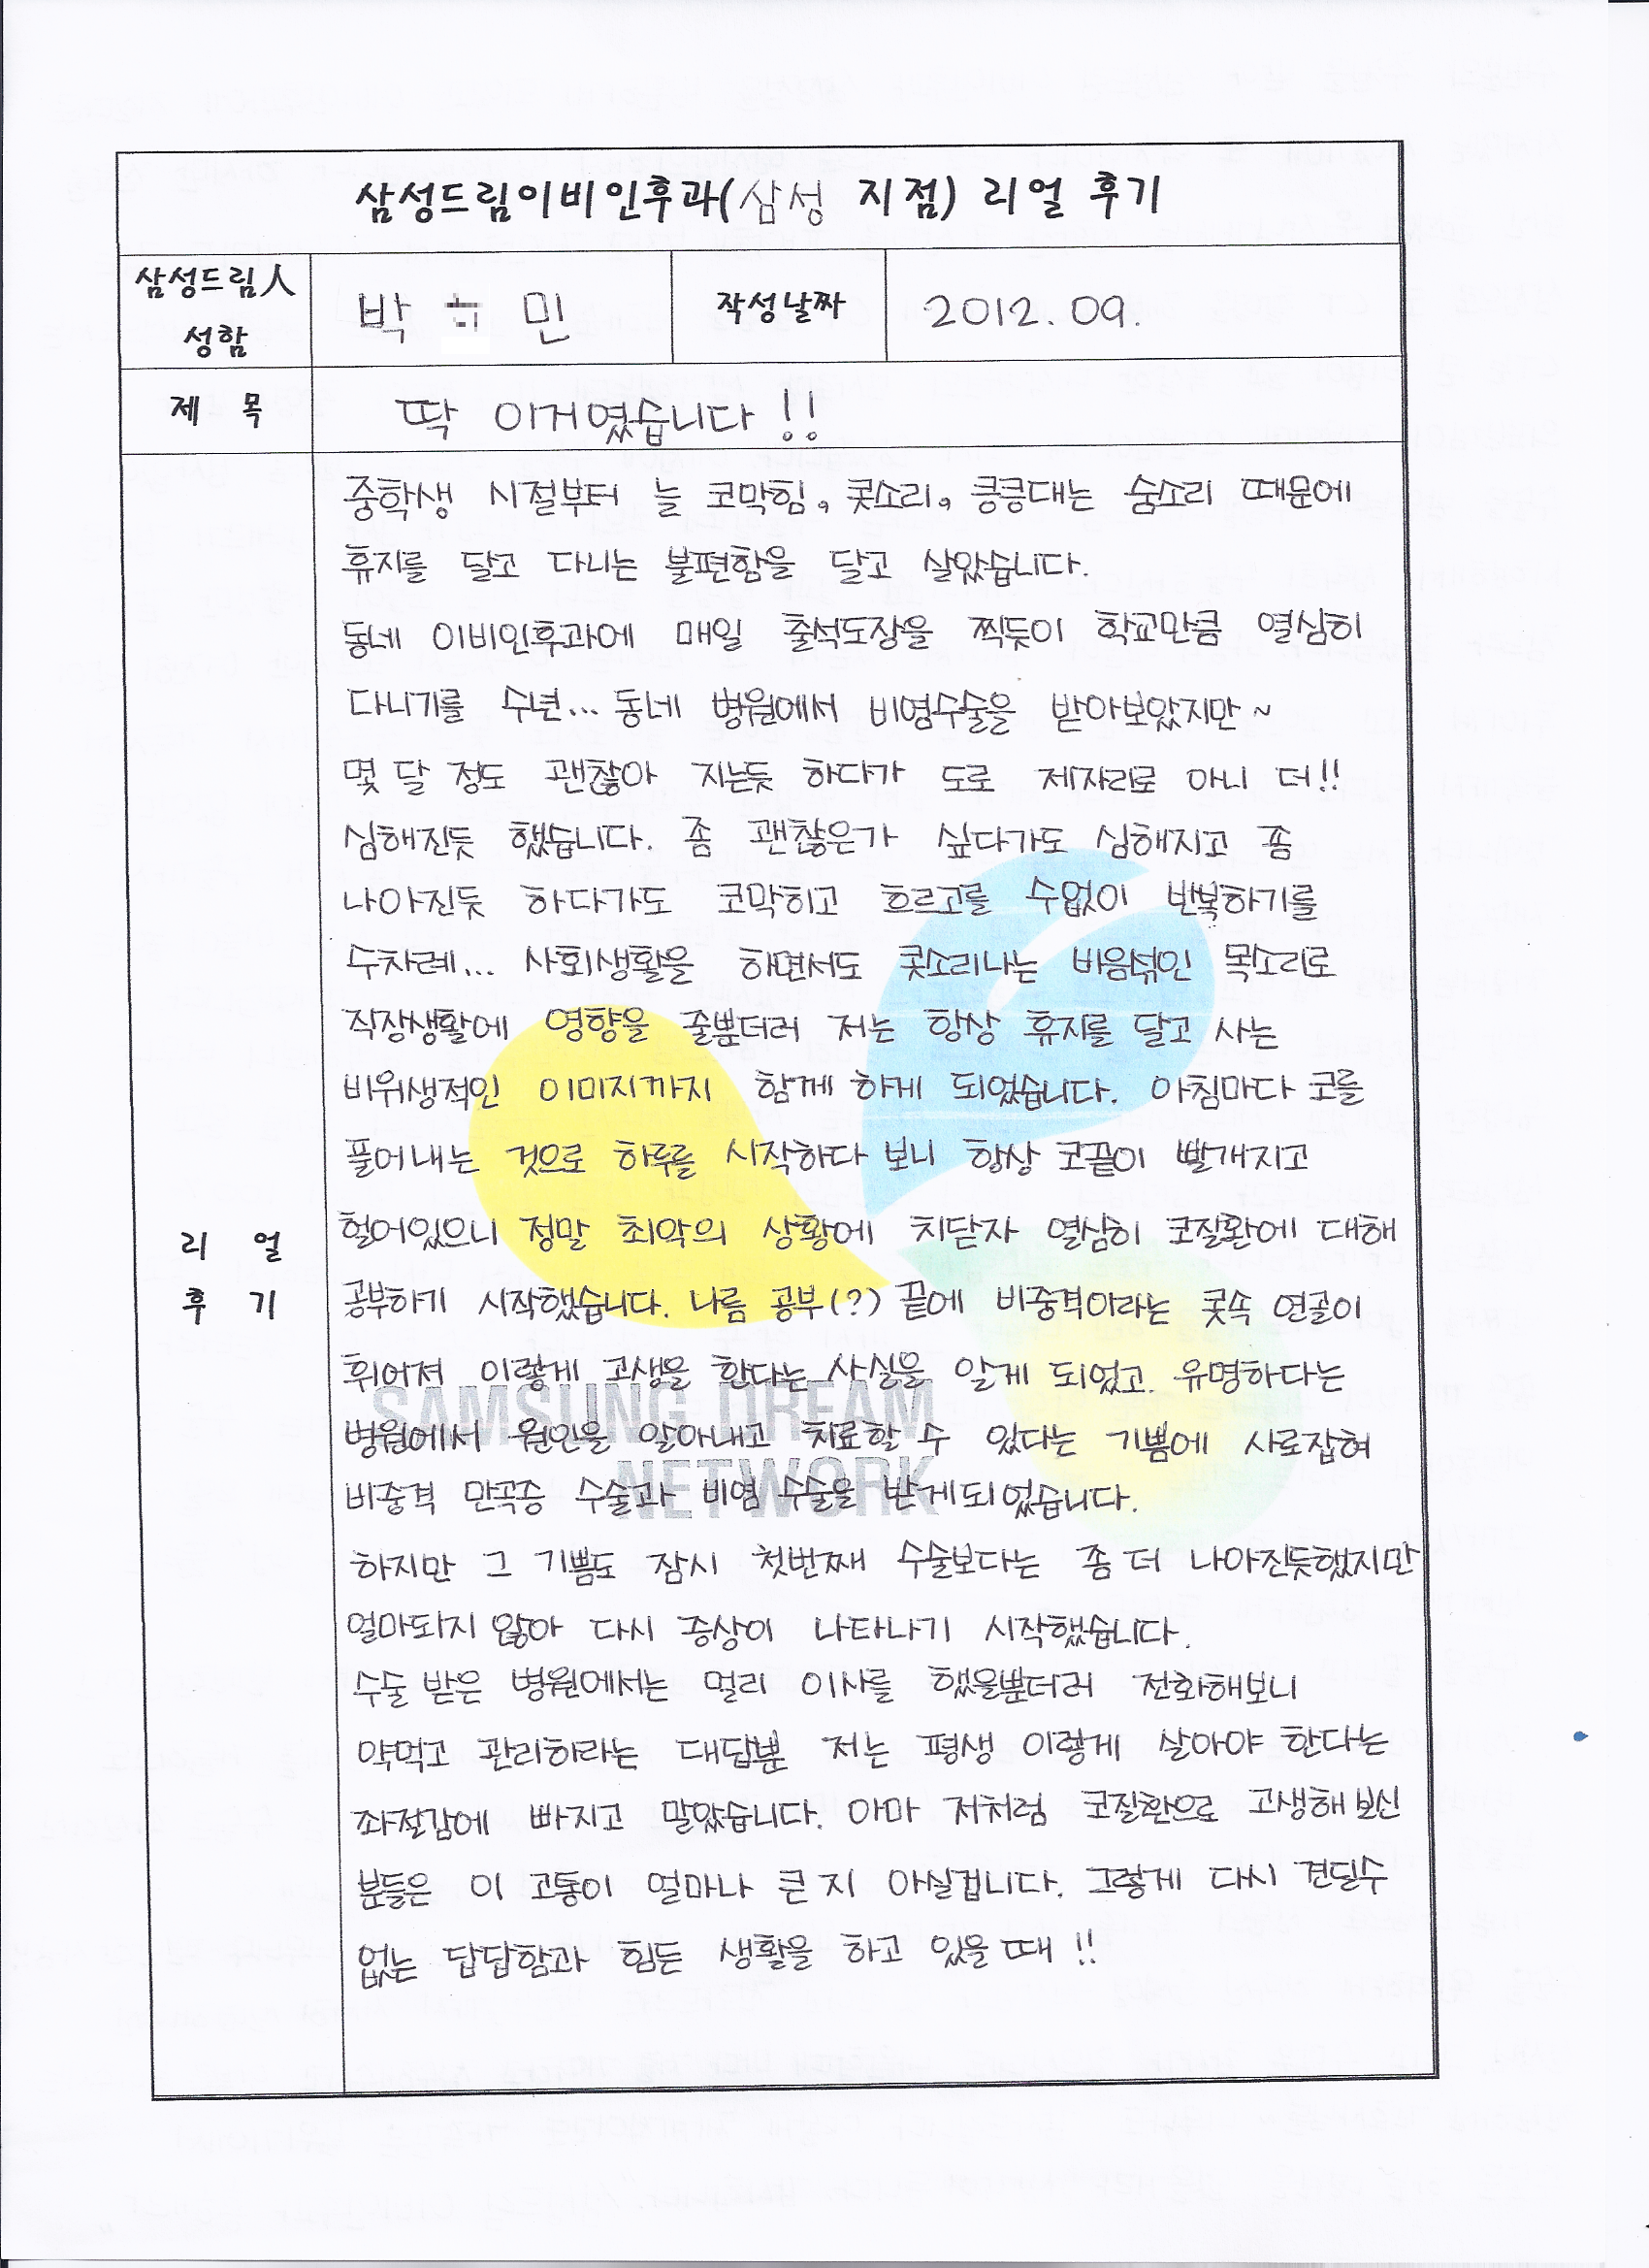 삼성드림이비인후과(삼성 지점) 리얼 후기
삼성드림人
성함
박 민
작성날짜
2012. 09.
제 목
딱 이거였습니다!!
리 얼
후 기
중학생 시절부터 늘 코막힘, 콧소리, 킁킁대는 숨소리 때문에
휴지를 달고 다니는 불편함을 달고 살았습니다.
동네 이비인후과에 매일 출석도장을 찍듯이 학교만큼 열심히
다니기를 수년... 동네 병원에서 비염수술을 받아보았지만~
몇 달 정도 괜찮아 지는듯 하다가 도로 제자리로 아니 더!!
심해진듯 했습니다. 좀 괜찮은가 싶다가도 심해지고 좀
나아진듯 하다가도 코막히고 흐르고를 수없이 반복하기를
수차례... 사회생활을 하면서도 콧소리나는 비음섞인 목소리로
직장생활에 영향을 줄뿐더러 저는 항상 휴지를 달고 사는
비위생적인 이미지까지 함께 하게 되었습니다. 아침마다 코를
풀어내는 것으로 하루를 시작하다 보니 항상 코끝이 빨개지고
헐어있으니 정말 최악의 상황에 치닫자 열심히 코질환에 대해
공부하기 시작했습니다. 나름 공부(?) 끝에 비중격이라는 콧속 연골이
휘어져 이렇게 고생을 한다는 사실을 알게 되었고. 유명하다는
병원에서 원인을 알아내고 치료할 수 있다는 기쁨에 사로잡혀
비중격 만곡증 수술과 비염 수술을 받게되었습니다.
하지만 그 기쁨도 잠시 첫번째 수술보다는 좀 더 나아진듯했지만
얼마되지 않아 다시 증상이 나타나기 시작했습니다.
수술 받은 병원에서는 멀리 이사를 했을뿐더러 전화해보니
약먹고 관리하라는 대답뿐 저는 평생 이렇게 살아야 한다는
좌절감에 빠지고 말았습니다. 아마 저처럼 코질환으로 고생해 보신
분들은 이 고통이 얼마나 큰 지 아실겁니다. 그렇게 다시 견딜수
없는 답답함과 힘든 생활을 하고 있을 때!!
SAMSUNG DREAM
NETWORK